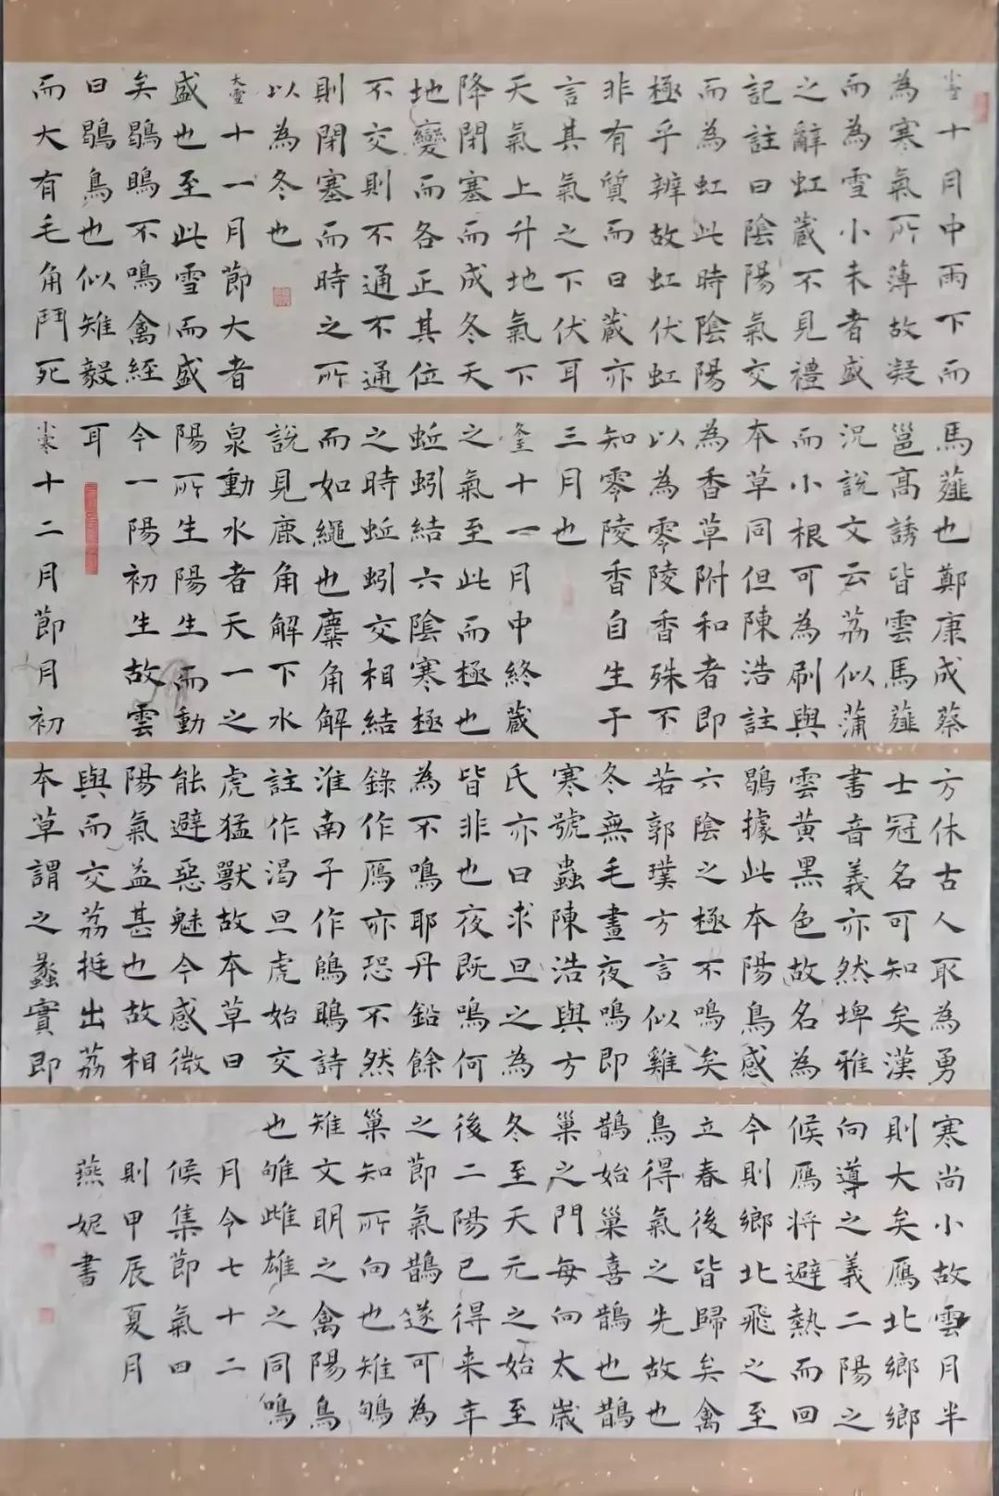 小雪十月中雨下而
為寒氣所薄故凝
而為雪小未者盛
之辭虹藏不見禮
記註曰陰陽氣交
而為虹此時陰陽
極乎辨故虹伏虹
非有質而曰藏亦
言其氣之下伏耳
天氣上升地氣下
降閉塞而成冬天
地變而各正其位
不交則不通不通
則閉塞而時之所
以為冬也
大雪十一月節大者
盛也至此雪而盛
矣鶡鴠不鳴禽經
曰鶡鳥也似雉毅
而大有毛角鬥死
馬薤也鄭康成蔡
邕高誘皆雲馬薤
況說文云荔似蒲
而小根可為刷與
本草同但陳浩註
為香草附和者即
以為零陵香殊不
知零陵香自生于
三月也
冬至十一月中終藏
之氣至此而極也
蚯蚓結六陰寒極
之時蚯蚓交相結
而如繩也麋角解
說見鹿角解下水
泉動水者天一之
陽所生陽生而動
今一陽初生故雲
耳
小寒十二月節月初
方休古人取為勇
士冠名可知矣漢
書音義亦然埤雅
雲黃黑色故名為
鶡據此本陽鳥感
六陰之極不鳴矣
若郭璞方言似雞
冬無毛晝夜鳴即
寒號蟲陳浩與方
氏亦曰求旦之為
皆非也夜既鳴何
為不鳴耶丹鉛餘
錄作鴈亦恐不然
淮南子作鳱鴠詩
註作渴旦虎始交
虎猛獸故本草曰
能避惡魅今感微
陽氣益甚也故相
與而交荔挺出荔
本草謂之蠡實即
寒尚小故雲月半
則大矣鴈北鄉鄉
向導之義二陽之
候鴈將避熱而回
今則鄉北飛之至
立春後皆歸矣禽
鳥得氣之先故也
鵲始巢喜鵲也鵲
巢之門每向太歲
冬至天元之始至
後二陽已得来年
之節氣鵲遂可為
巢知所向也雉雊
雉文明之禽陽鳥
也雊雌雄之同鳴
月令七十二
候集節氣四
則甲辰夏月
燕妮書